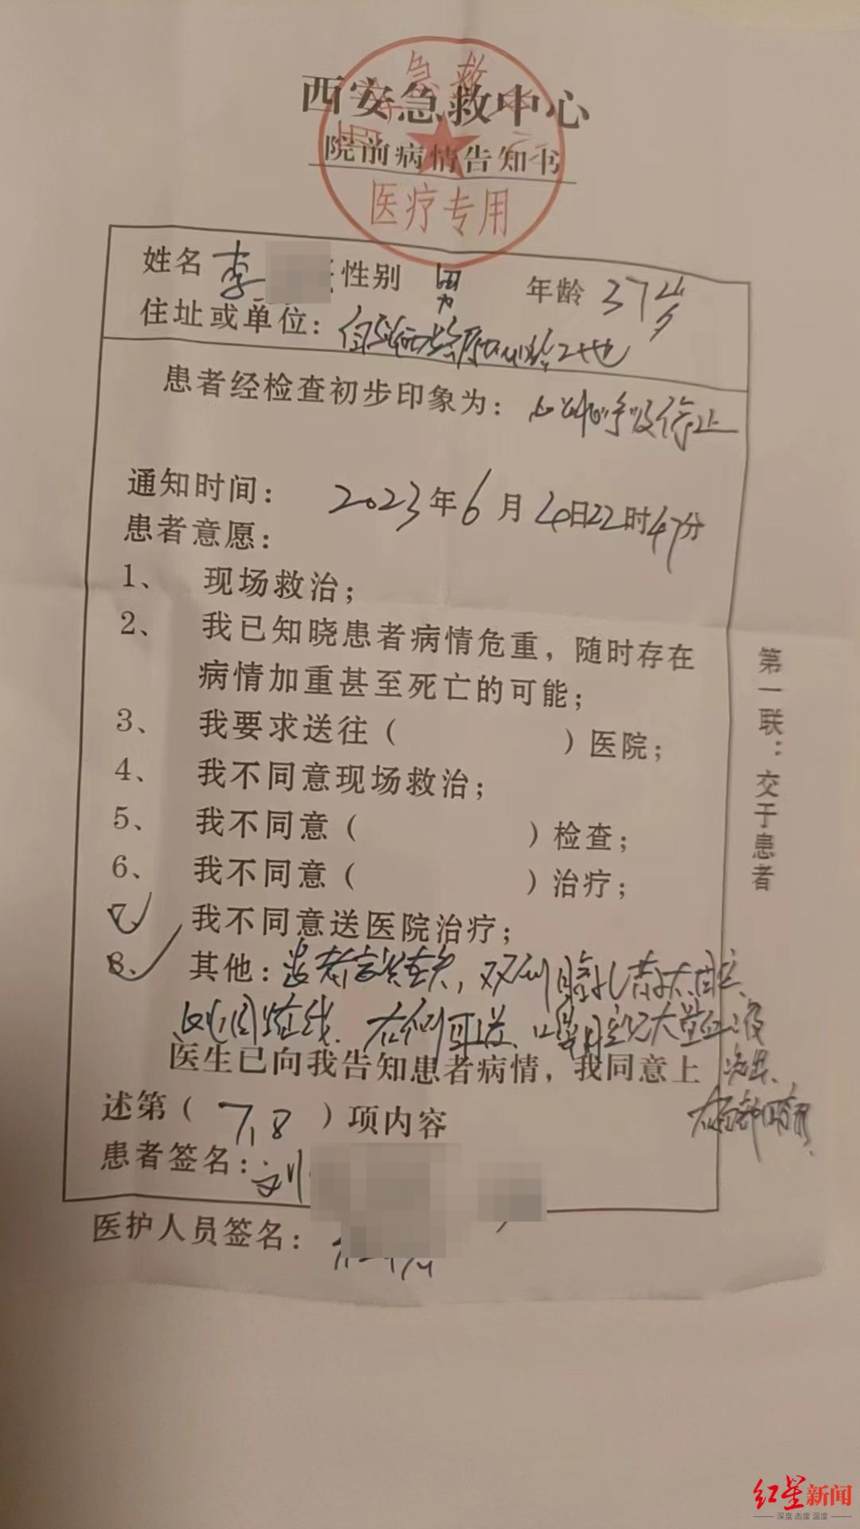 西安急救中心
院前病情告知书
急救
医疗专用
姓名 李 性别 男 年龄 37岁
住址或单位： 工地
患者经检查初步印象为： 心跳呼吸停止
通知时间： 2023年6月4日22时47分
患者意愿：
1、 现场救治；
2、 我已知晓患者病情危重，随时存在
病情加重甚至死亡的可能；
3、 我要求送往（ ）医院；
4、 我不同意现场救治；
5、 我不同意（ ）检查；
6、 我不同意（ ）治疗；
7、 我不同意送医院治疗；
8、 其他：患者意识丧失，双侧瞳孔散大固定、
心电图直线、右侧耳道、口鼻腔见大量血液
医生已向我告知患者病情，我同意上
流出、
述第（ 7、8 ）项内容
患者签名： 刘
医护人员签名：
第一联：交于患者
红星新闻
深度 态度 温度